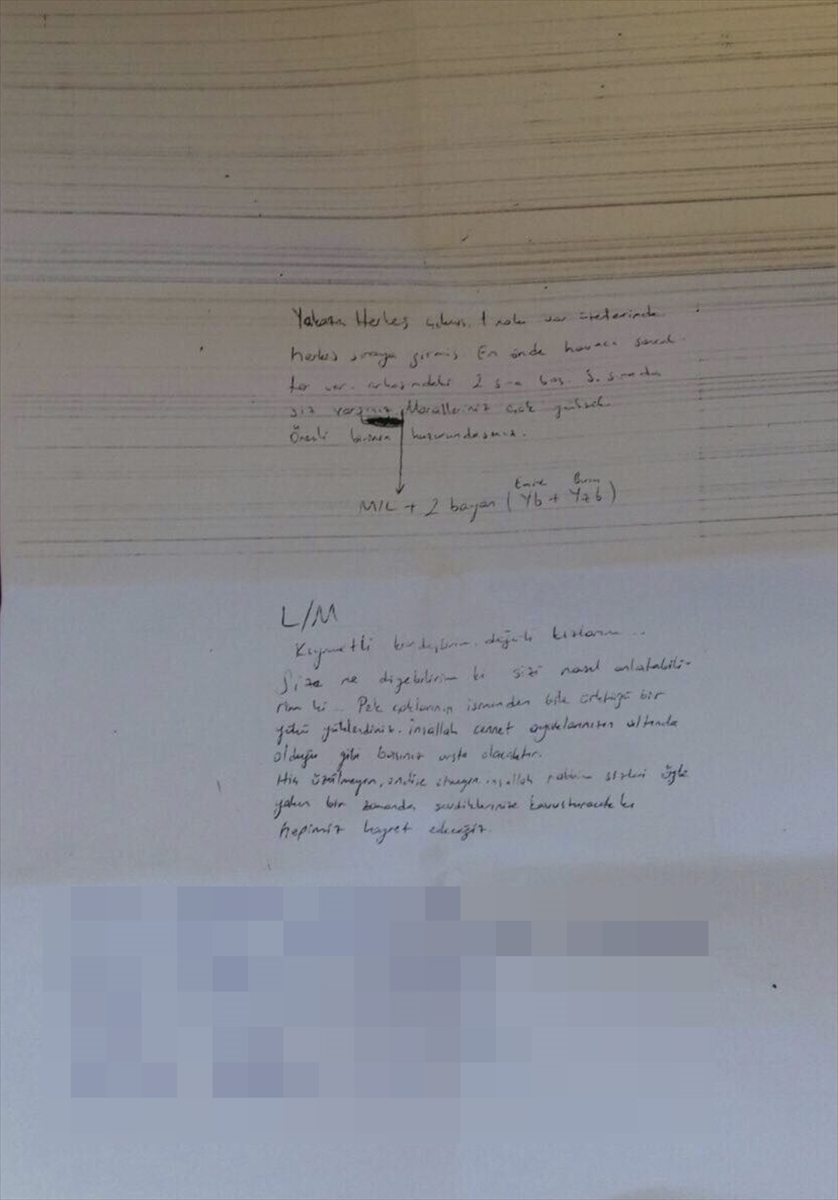 Herkes 1 nolu var üzerlerinde
herkes sıraya girmiş En önde havacı
ler var. arkasındaki 2 sıra boş. 3. sırada
siz varsınız Moralleriniz çok yüksek.
Önemli birinin huzurundasınız.
+ 2 bayan (Yb + Yzb)
L/M
Kıymetli kardeşlerim, değerli kızlarım...
Size ne diyebilirim ki sizi nasıl anlatabili-
rim ki... Pek çoklarının isminden bile ürktüğü bir
yükü yüklendiniz. inşallah cennet ayaklarınızın altında
olduğu gibi başınız üstte olacaktır.
Hiç üzülmeyin, endişe etmeyin inşallah rabbim sizleri öyle
yakın bir zamanda sevdiklerinize kavuşturacak ki
hepimiz hayret edeceğiz.